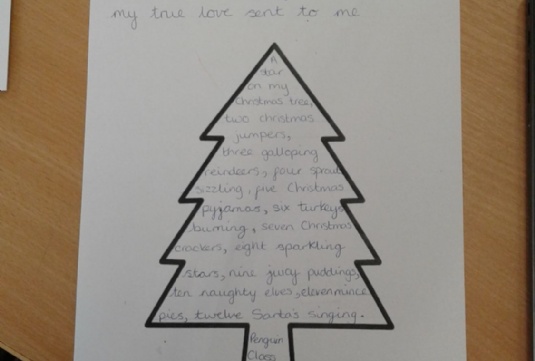 my true love sent to me
A
star
on my
Christmas tree,
two christmas
jumpers,
three galloping
reindeers, four sprouts
sizzling, five Christmas
pyjamas, six turkeys
burning, seven Christmas
crackers, eight sparkling
stars, nine juicy puddings,
ten naughty elves, eleven mince
pies, twelve Santa's singing.
Penguin
Class